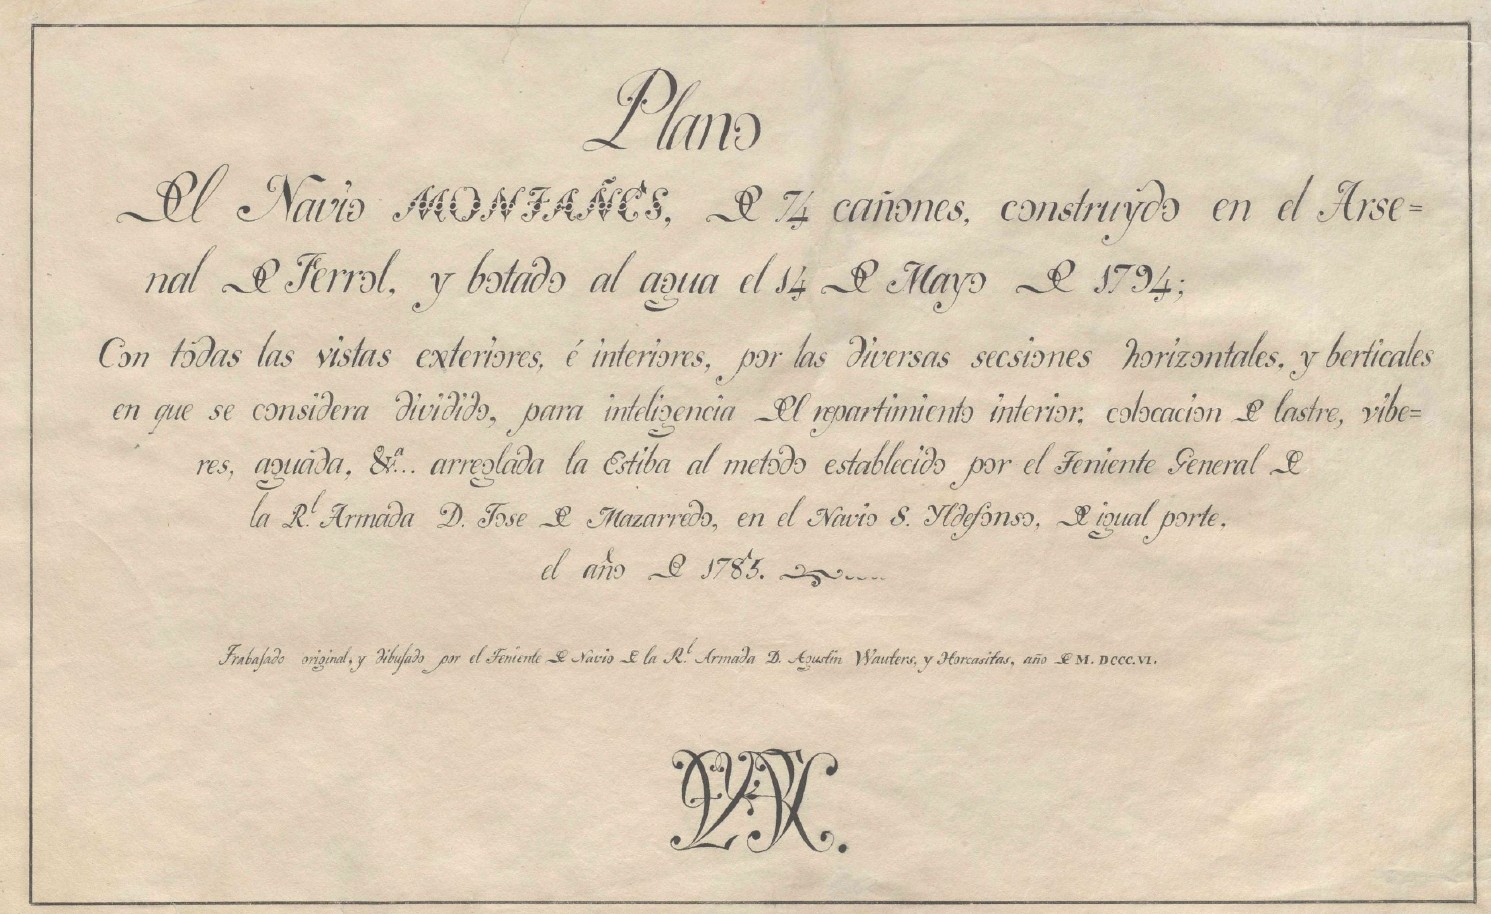 Plano
Del Navio MONTAÑES, De 74 cañones, construydo en el Arse=
nal De Ferrol, y botado al agua el 14 De Mayo De 1794;
Con todas las vistas exteriores, é interiores, por las diversas secsiones horizontales, y berticales
en que se considera dividido, para inteligencia Del repartimiento interior, colocacion De lastre, vibe=
res, aguada, &ª... arreglada la Estiba al metodo establecido por el Teniente General De
la Rˡ. Armada D. Jose De Mazarredo, en el Navio S. Yldefonso, De igual porte,
el año De 1785.
Trabajado original, y dibujado por el Teniente De Navio De la Rˡ. Armada D. Agustin Wauters, y Horcasitas, año De M. DCCC.VI.